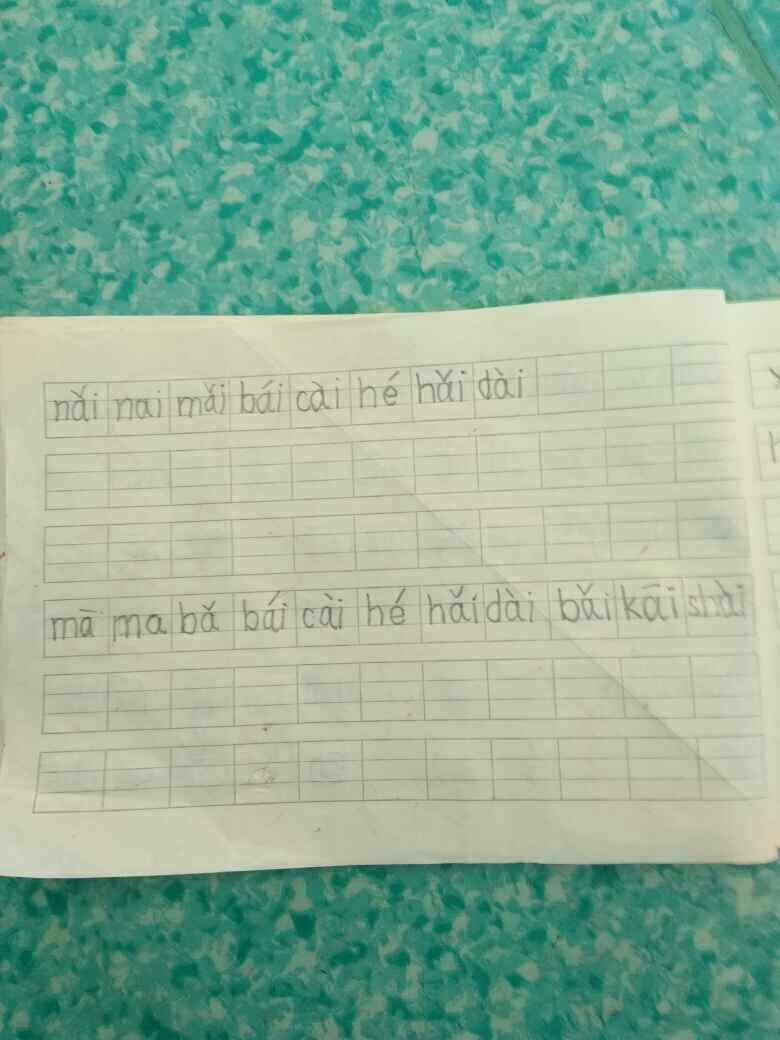 nǎi nai mǎi bái cài hé hǎi dài
mā ma bǎ bái cài hé hǎi dài bǎi kāi shài